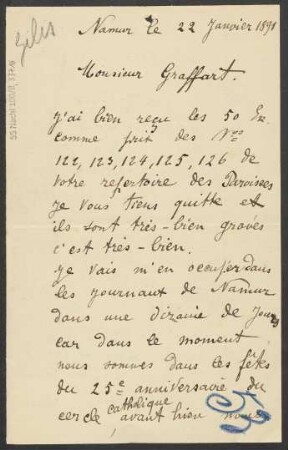 Gilis
Namur le 22 Janvier 1891
Monsieur Graffart.
J'ai bien reçu les 50 Ex.
comme prix des Nos
122, 123, 124, 125, 126 de
votre repertoire des Paroisses
je vous tiens quitte et
ils sont très-bien gravés
c'est très-bien.
je vais m'en occuper dans
les journaux de Namur
dans une dizaine de jours
car dans le moment
nous sommes dans les fêtes
du 25e anniversaire du
cercle catholique avant bien